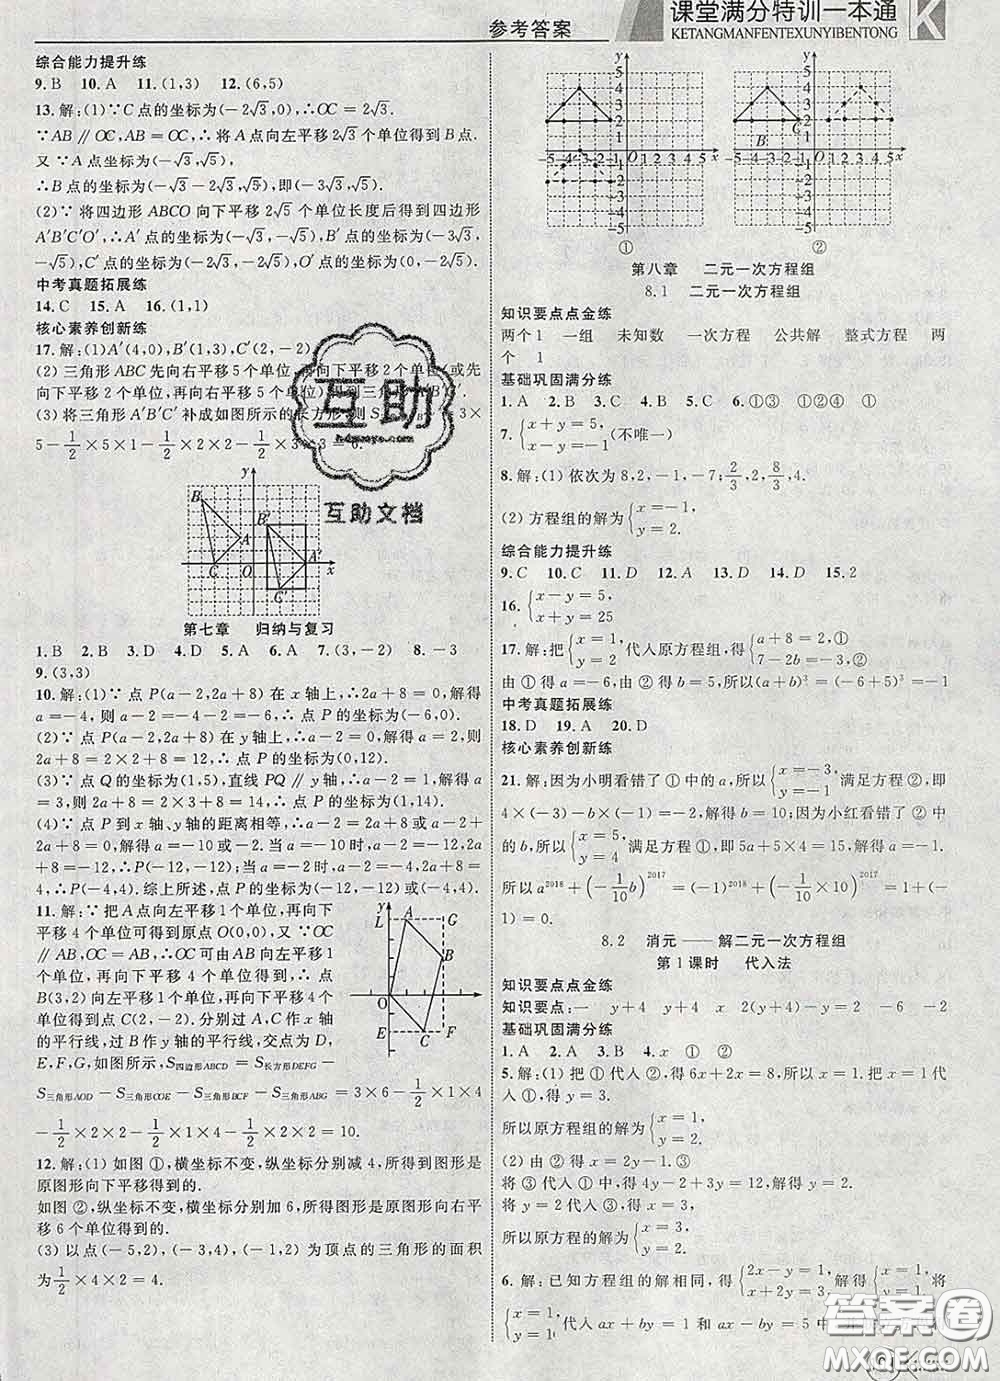 参考答案
课堂满分特训一本通
KETANGMANFENTEXUNYIBENTONG
K
综合能力提升练
9. B 10. A 11. (1,3) 12. (6,5)
13. 解:(1)∵C点的坐标为(-2√3,0),∴OC=2√3.
∵AB∥OC,AB=OC,∴将A点向左平移2√3个单位得到B点.
又∵A点的坐标为(-√3,√5),
∴B点的坐标为(-√3-2√3,√5),即(-3√3,√5)
(2)∵将四边形ABCO向下平移2√5个单位长度后得到四边形
A′B′C′O′,∴A′点的坐标为(-√3,-√5),B′点的坐标为(-3√3,
-√5),C′点的坐标为(-2√3,-2√5),O′点的坐标为(0,-2√5).
中考真题拓展练
14. C 15. A 16. (1,1)
核心素养创新练
17. 解:(1)A′(4,0),B′(1,3),C′(2,-2)
(2)三角形ABC先向右平移5个单位,再向下平移2个单位(或先
向下平移2个单位,再向右平移5个单位)得到三角形A′B′C′.
(3)将三角形A′B′C′补成如图所示的长方形,则S
=3×
5-1/2×5×1-1/2×2×2-1/2×3×3=6.
y
B
B′
A
C
O
A′
C′
x
第七章 归纳与复习
1. B 2. B 3. D 4. D 5. A 6. A 7. (3,-2) 8. -3
9. (3,3)
10. 解:(1)∵点P(a-2,2a+8)在x轴上,∴2a+8=0,解得
a=-4,则a-2=-4-2=-6,∴点P的坐标为(-6,0).
(2)∵点P(a-2,2a+8)在y轴上,∴a-2=0,解得a=2,则
2a+8=2×2+8=12,∴点P的坐标为(0,12).
(3)∵点Q的坐标为(1,5),直线PQ∥y轴,∴a-2=1,解得a=
3,则2a+8=2×3+8=14,∴点P的坐标为(1,14).
(4)∵点P到x轴、y轴的距离相等,∴a-2=2a+8或a-2+
2a+8=0,解得a=-10或-2.当a=-10时,a-2=-12,2a+
8=-12,∴P(-12,-12);当a=-2时,a-2=-4,2a+8=
4,∴P(-4,4).综上所述,点P的坐标为(-12,-12)或(-4,4).
11. 解:∵把A点向左平移1个单位,再向下
平移4个单位可得到原点O(0,0),又∵OC
∥AB,OC=AB,∴C点可由B点向左平移1
个单位,再向下平移4个单位得到,∴点
B(3,2)向左平移1个单位,再向下平移4个
单位得到点C(2,-2).分别过A,C作x轴
的平行线,过B作y轴的平行线,交点为D,
E,F,G,如图所示,S四边形ABCD=S长方形DEFG-
S三角形AOD-S三角形COE-S三角形BCF-S三角形ABG=3×6-1/2×1×4
-1/2×2×2-1/2×1×4-1/2×2×2=10.
y
L
A
G
B
O
x
E
C
F
12. 解:(1)如图①,横坐标不变,纵坐标分别减4,所得图形是原
图形向下平移得到的.
如图②,纵坐标不变,横坐标分别加6,所得图形是原图形向右平
移6个单位得到的.
(3)以点(-5,2),(-3,4),(-1,2)为顶点的三角形的面积
为1/2×4×2=4.
①
②
第八章 二元一次方程组
8.1 二元一次方程组
知识要点点金练
两个 1 一组 未知数 一次方程 公共解 整式方程 两
个 1
基础巩固满分练
1. A 2. B 3. C 4. B 5. C 6. ①③ ①②④ ①
7. {x+y=5, x-y=-1 (不唯一)
8. 解:(1)依次为8,2,-1,-7;2/3,2,8/3,4.
(2)方程组的解为{x=-1, y=2.
综合能力提升练
9. C 10. C 11. D 12. A 13. D 14. D 15. 2
16. {x-y=5, x+y=25
17. 解:把{x=1, y=2 代入原方程组,得{a+8=2,① 7-2b=-3,②
由①得a=-6,由②得b=5,所以(a+b)³=(-6+5)³=-1
中考真题拓展练
18. D 19. A 20. D
核心素养创新练
21. 解:因为小明看错了①中的a,所以{x=-3, y=-1 满足方程②,即
4×(-3)-b×(-1)=-2,解得b=10;因为小红看错了②中
的b,所以{x=5, y=4 满足方程①,即5a+5×4=15,解得a=-1.
所以a²⁰¹⁸+(-1/10 b)²⁰¹⁷=(-1)²⁰¹⁸+(-1/10×10)²⁰¹⁷=1+(
-1)=0.
8.2 消元——解二元一次方程组
第1课时 代入法
知识要点点金练
知识要点:一 y+4 y+4 x 2(y+4)-y=2 -6 -2
基础巩固满分练
1. A 2. A 3. B 4. x ① ②
5. 解:(1)把①代入②,得6x+2x=8,所以x=1.把x=1代入
①,得y=2.所以原方程组的解为{x=1, y=2.
(2)由②得x=2y-1.③
将③代入①中,得4y-2+3y=12,解得y=2.
将y=2代入③,得x=3.
所以原方程组的解为{x=3, y=2.
6. 解:已知方程组的解相同,得{2x-y=1, x+2y=3, 解得{x=1, y=1, 将
{x=1, y=1 代入ax+by=1和ax-by=5中
互助
hdzuoye.com
互助文档
答案圈
MXQE.COM